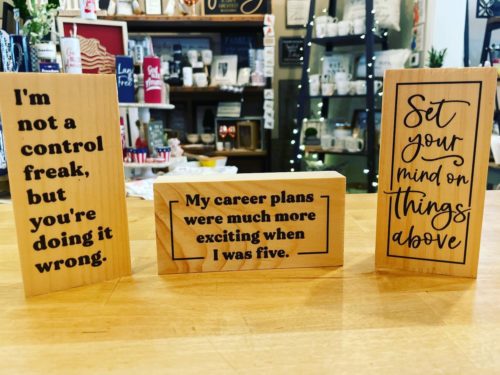 I'm
not a
control
freak,
but
you're
doing it
wrong.
My career plans
were much more
exciting when
I was five.
Set
your
mind on
things
above